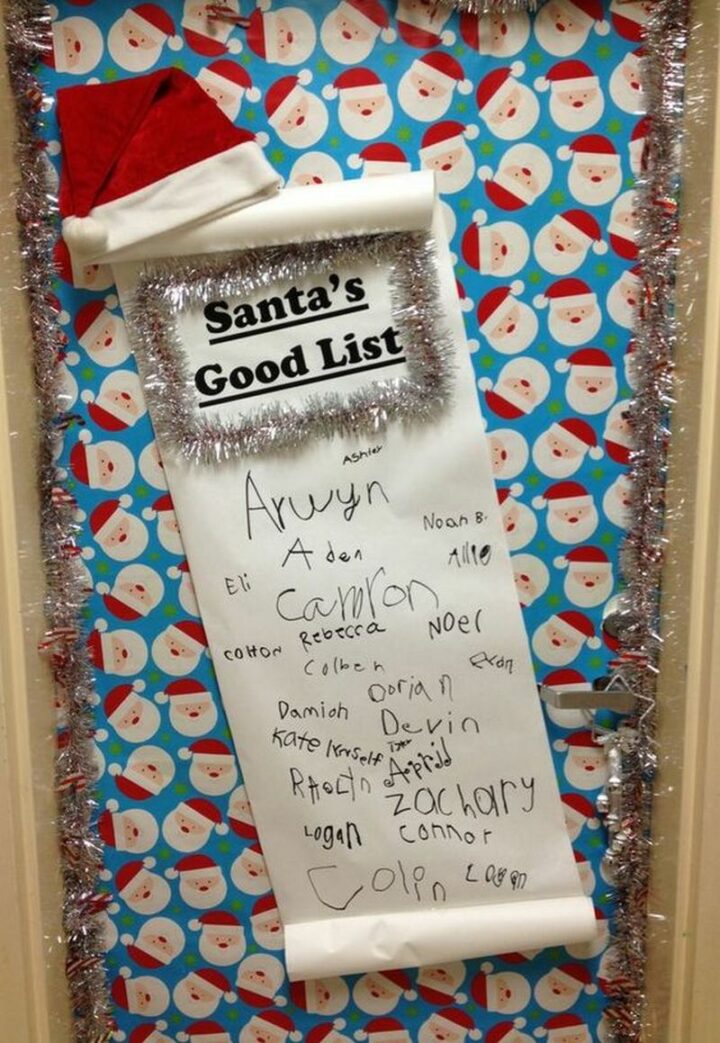 Santa's
Good List
Ashley
Arwyn
Noah B.
Aden
Allie
Eli
Camron
Rebecca
Noel
Colton
Colben
Dorian
Damion
Devin
Kate
Tyler
April
Zachary
Logan
Connor
Colin
Logan